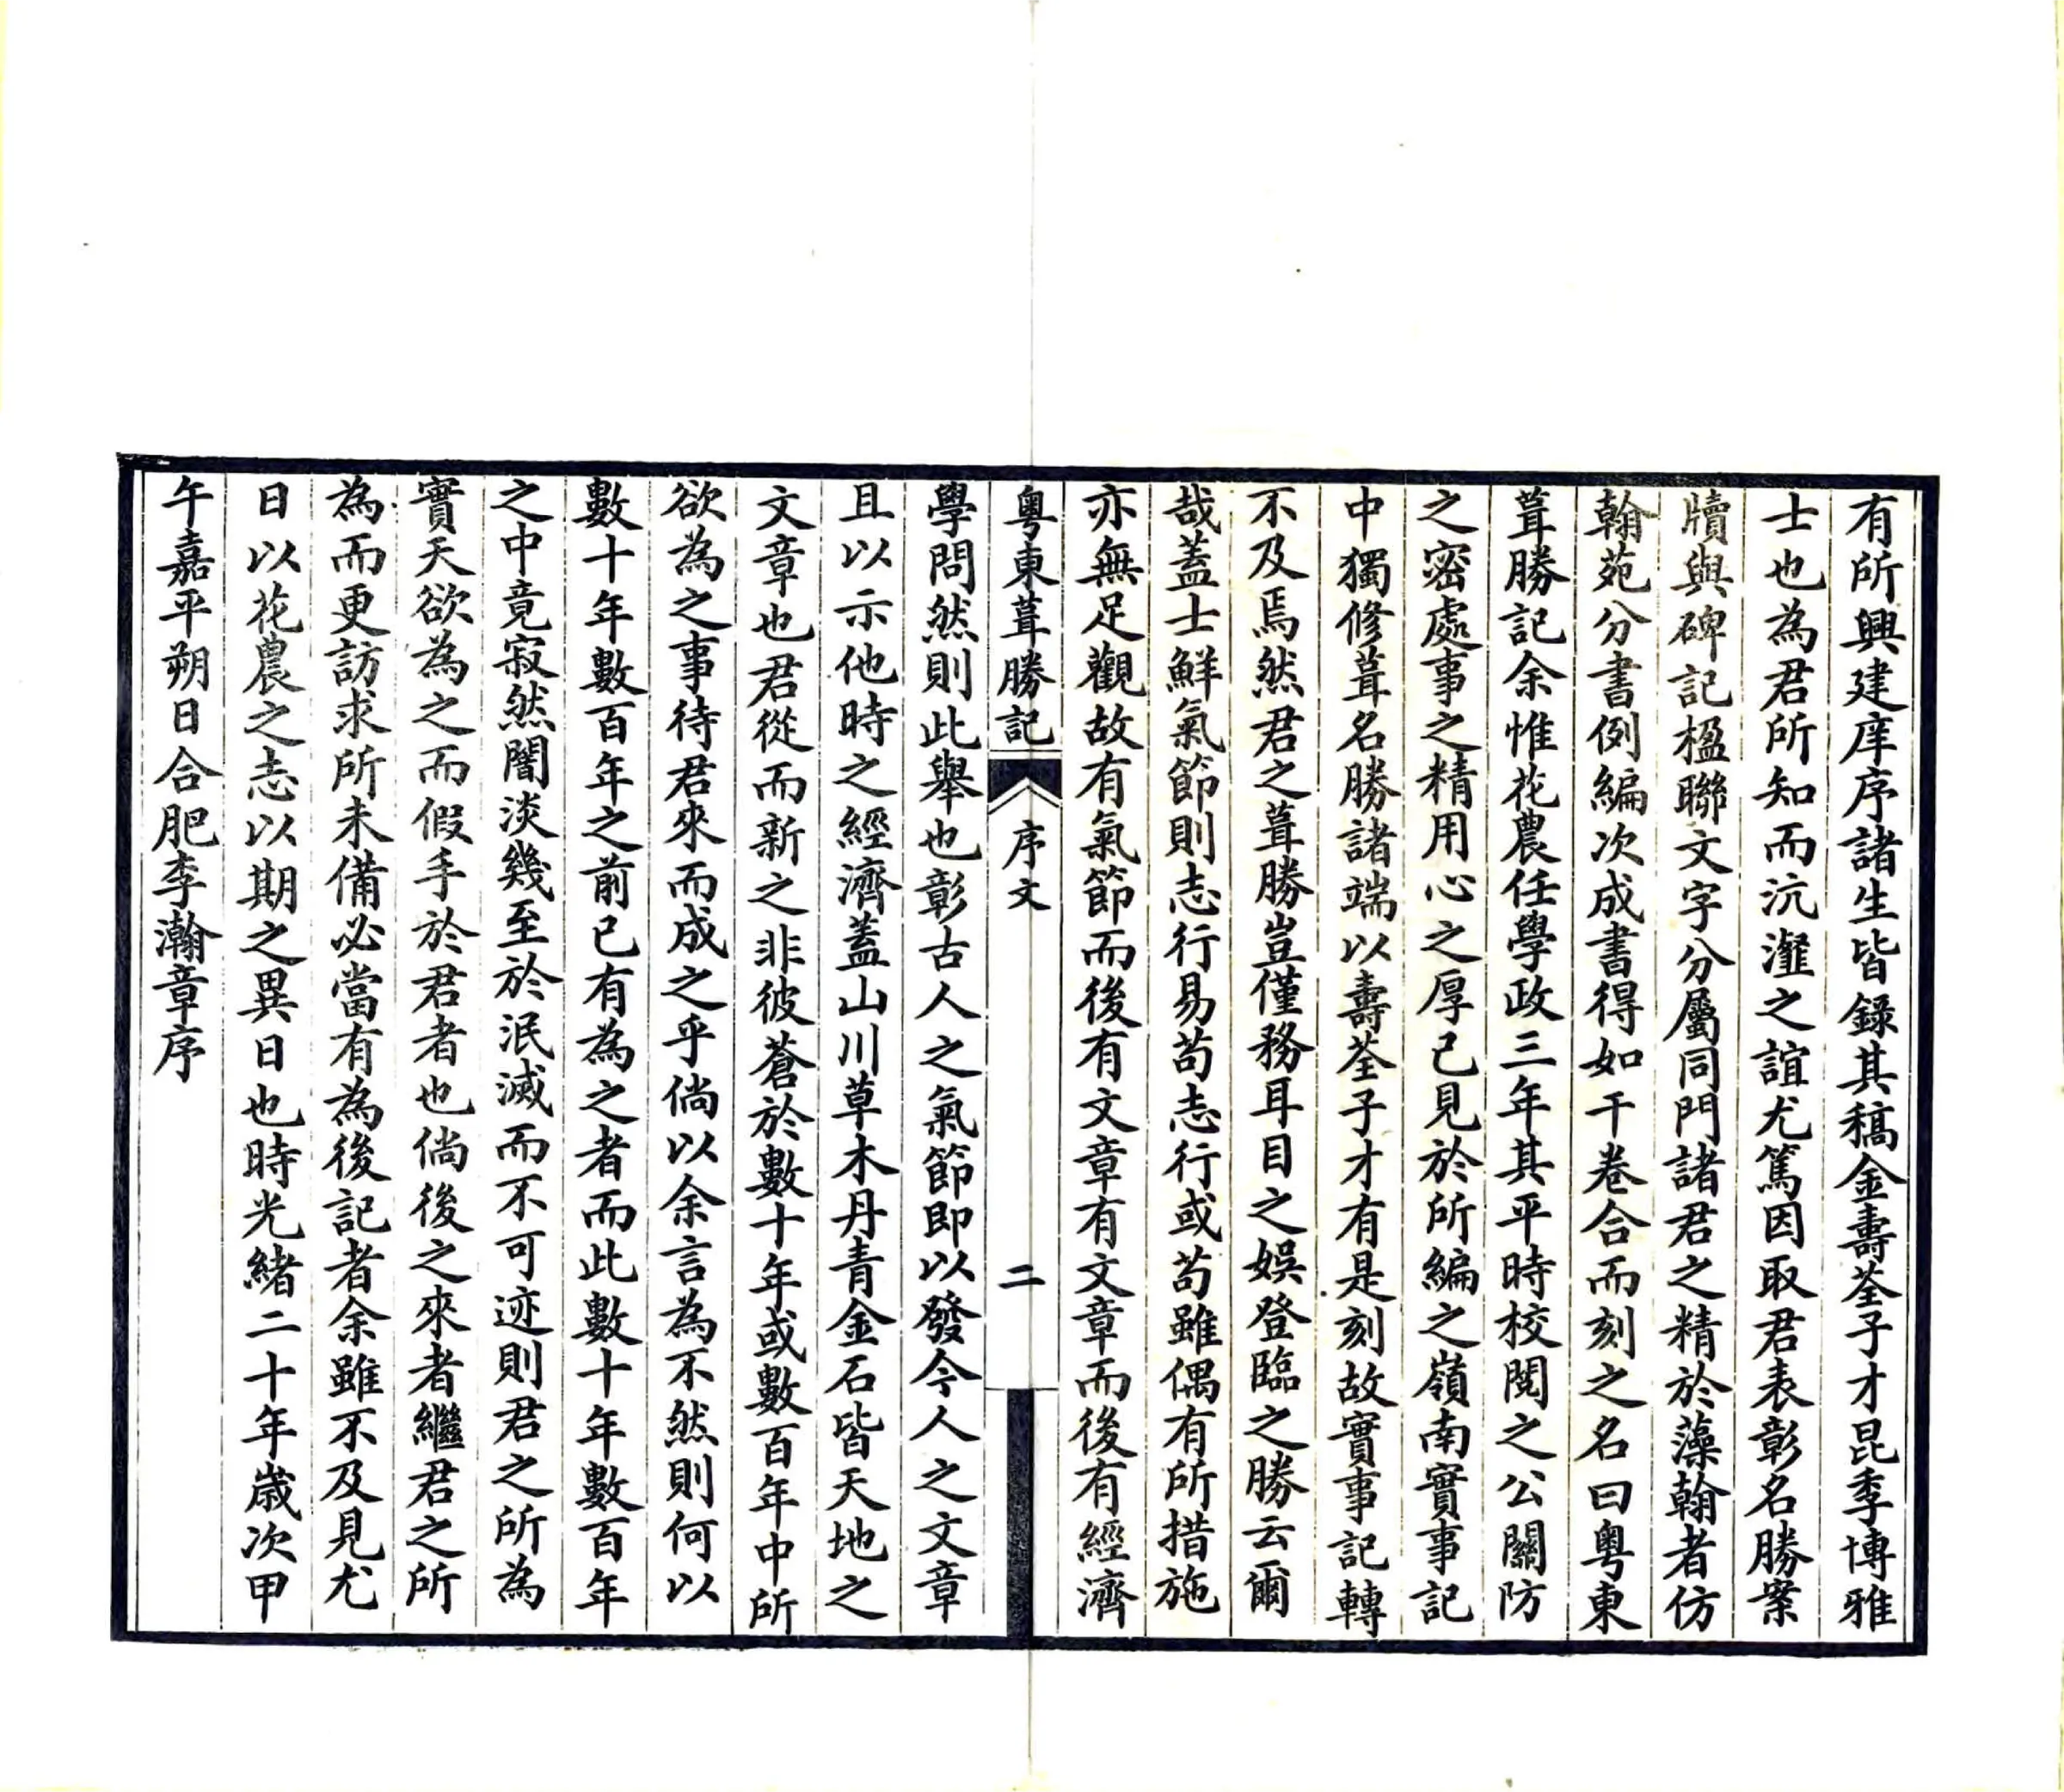 有所興建庠序諸生皆錄其稿金壽荃子才昆季博雅
士也為君所知而沆瀣之誼尤篤因取君表彰名勝案
牘與碑記楹聯文字分屬同門諸君之精於藻翰者仿
翰苑分書例編次成書得如干卷合而刻之名曰粵東
葺勝記余惟花農任學政三年其平時校閱之公關防
之密處事之精用心之厚已見於所編之嶺南實事記
中獨修葺名勝諸端以壽荃子才有是刻故實事記轉
不及焉然君之葺勝豈僅務耳目之娛登臨之勝云爾
哉蓋士鮮氣節則志行易苟志行或苟雖偶有所措施
亦無足觀故有氣節而後有文章有文章而後有經濟
粵東葺勝記 序文 二
學問然則此舉也彰古人之氣節即以發今人之文章
且以示他時之經濟蓋山川草木丹青金石皆天地之
文章也君從而新之非彼蒼於數十年或數百年中所
欲為之事待君來而成之乎倘以余言為不然則何以
數十年數百年之前已有為之者而此數十年數百年
之中竟寂然闇淡幾至於泯滅而不可迹則君之所為
實天欲為之而假手於君者也倘後之來者繼君之所
為而更訪求所未備必當有為後記者余雖不及見尤
日以花農之志以期之異日也時光緒二十年歲次甲
午嘉平朔日合肥李瀚章序